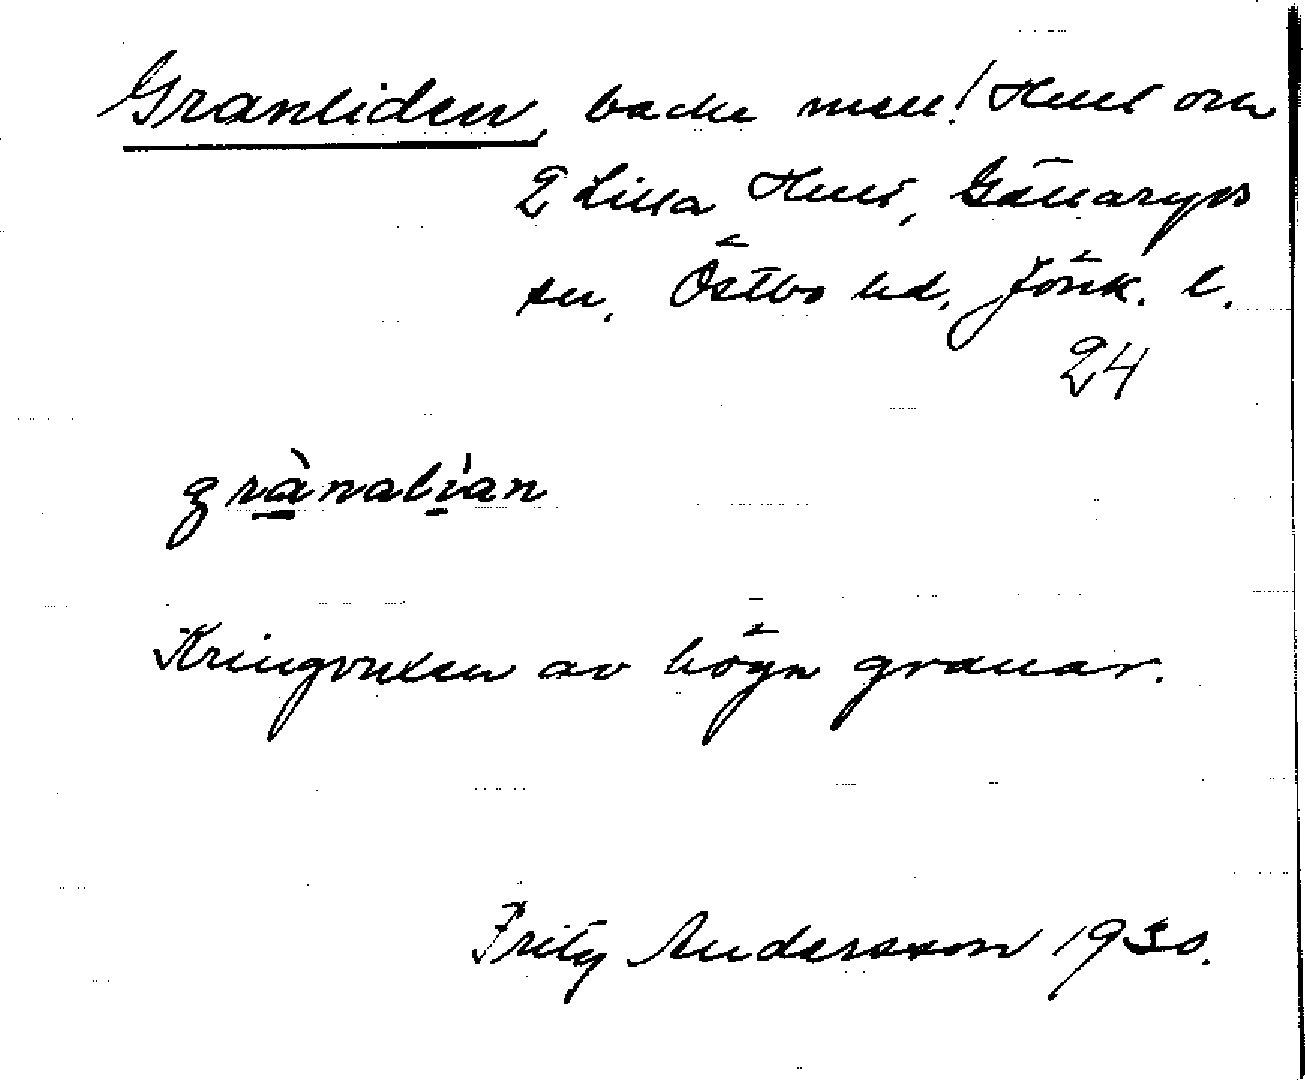 Granliden, backe mell! Hult och
2 Lilla Hult, Gällaryds
sn, Östbo hd, Jönk. l.
24
grànalían
Kringvuxen av höga granar.
Fritz Andersson 1930.